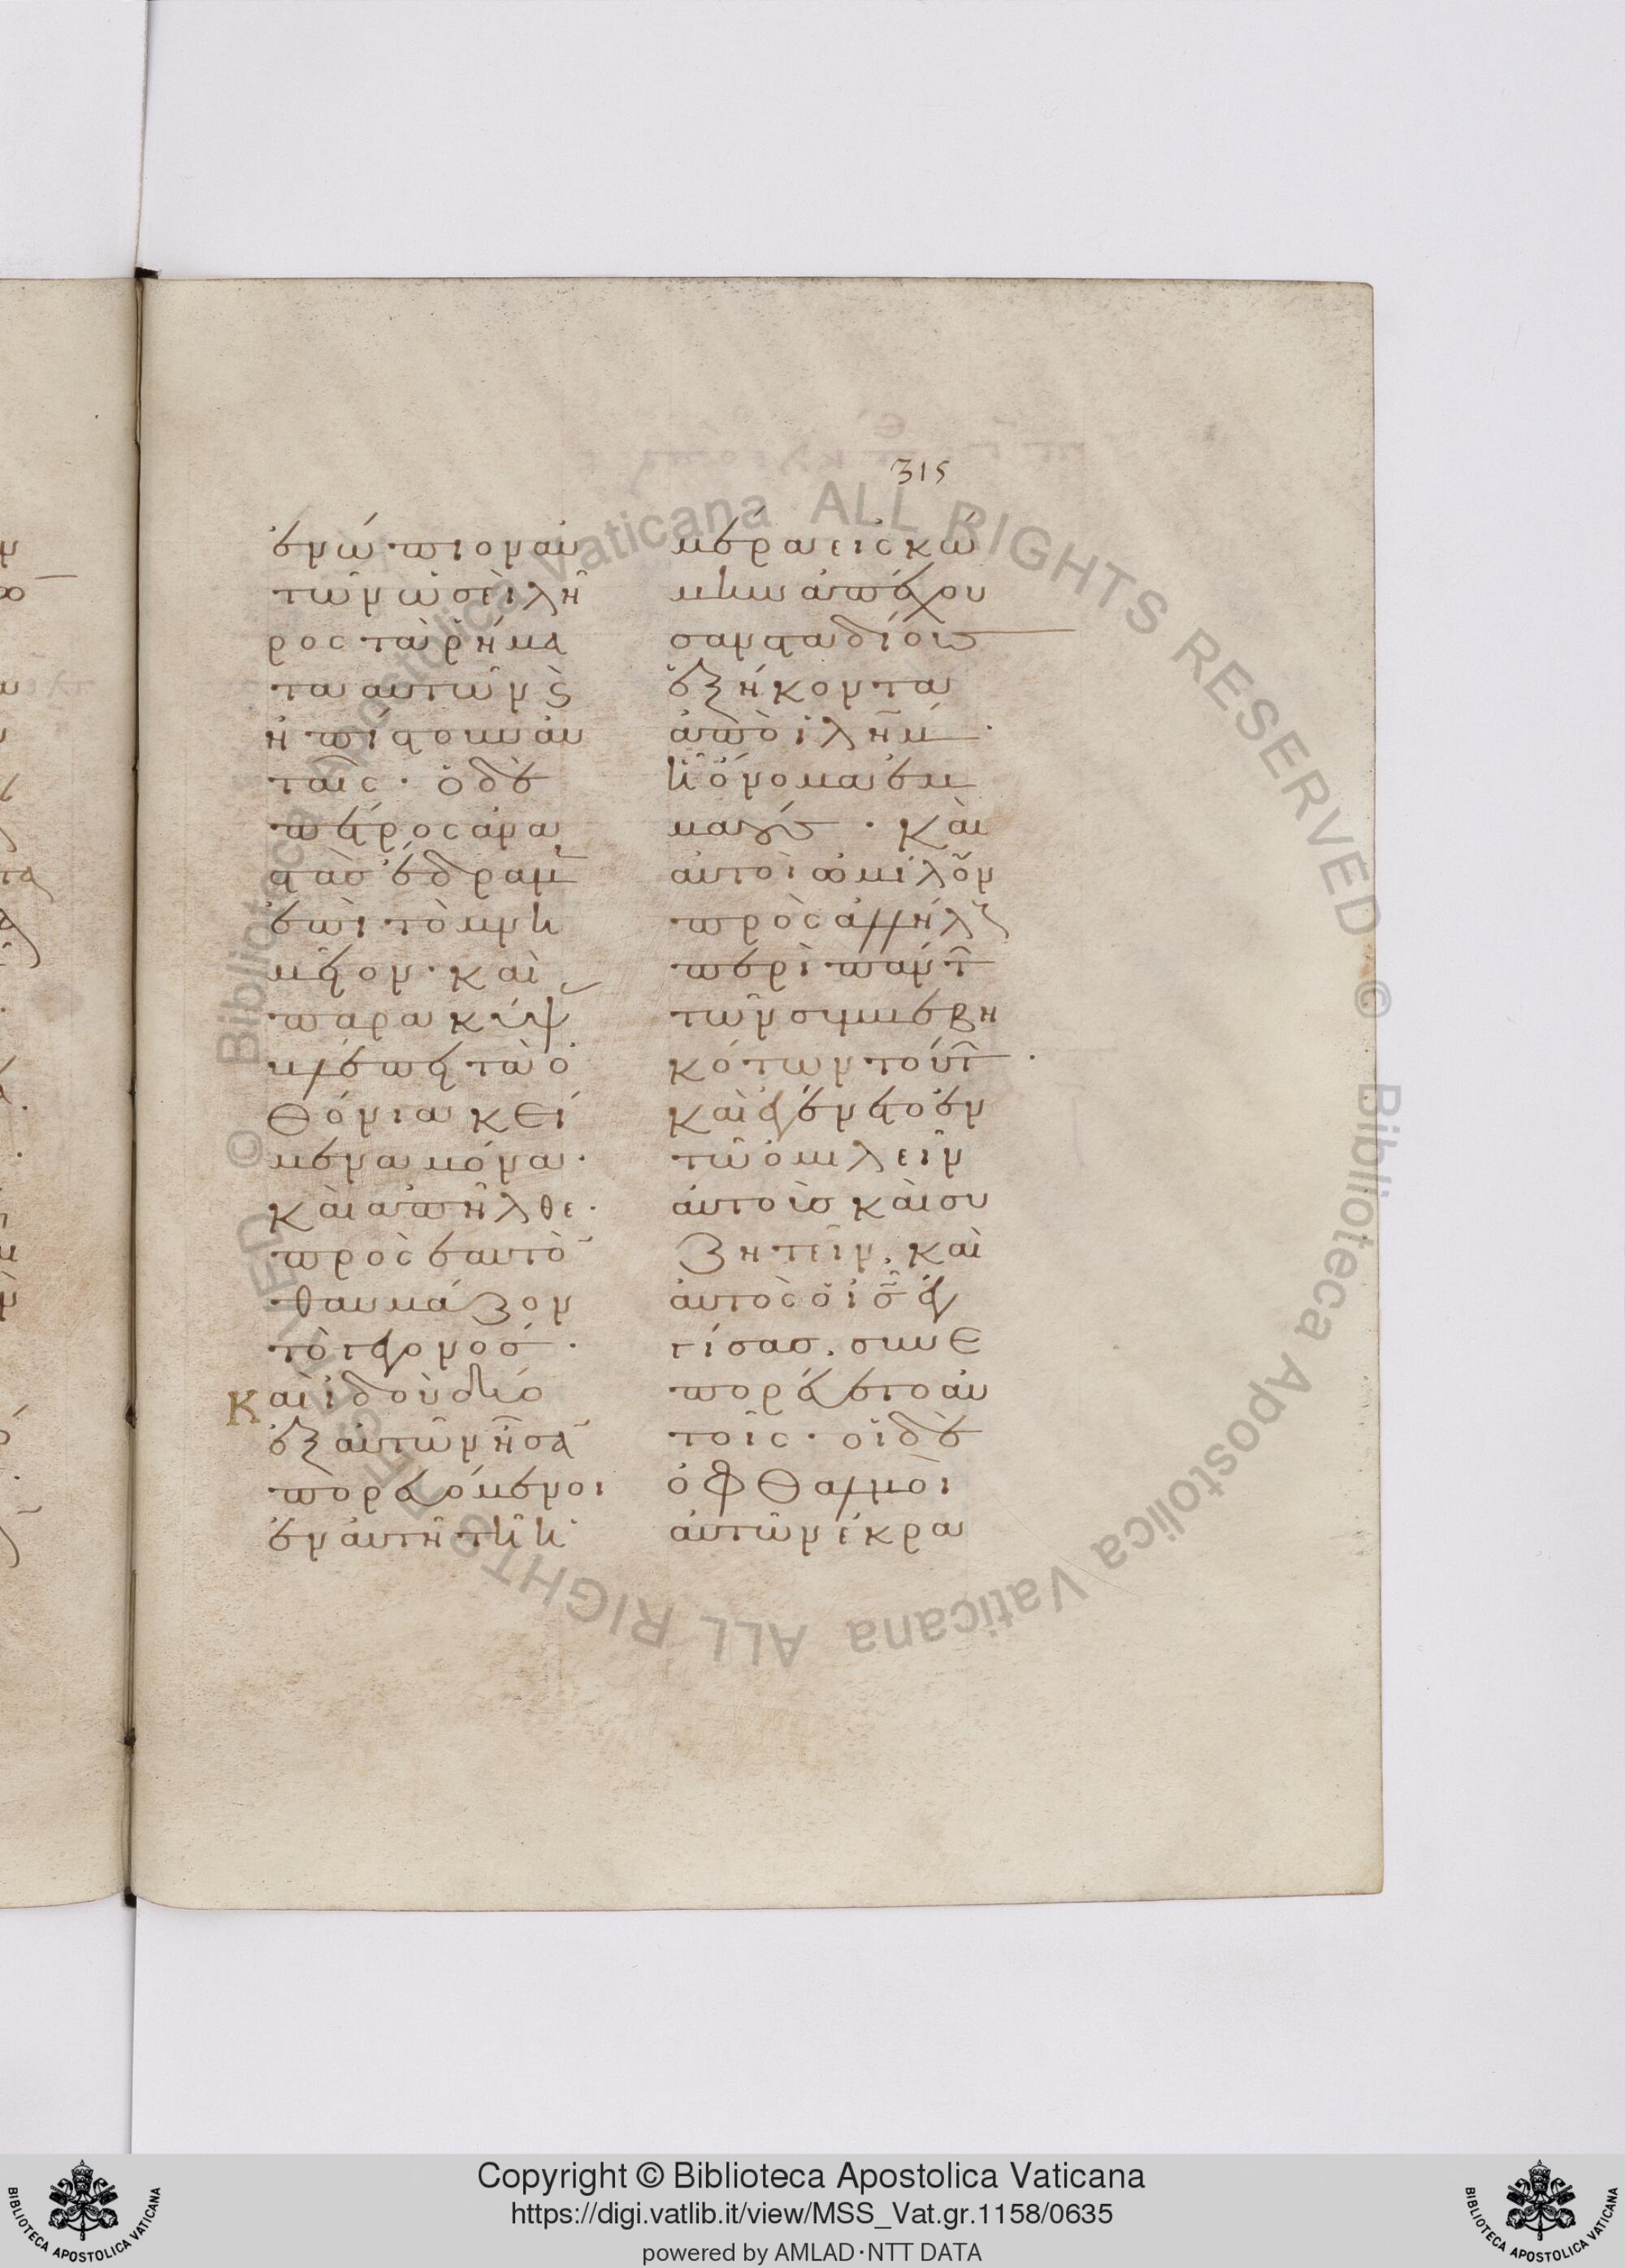 315
ἐνώπιον αὐ
τῶν ὡσεὶ λῆ
ρος τὰ ῥήμα
τα αὐτῶν ϛ
ἠπίστουν αὐ
ταῖς· ὁ δὲ
πέτρος ἀνα
στὰσ ἔδραμ̅
ἐπὶ τὸ μνη
μεῖον· καὶ
παρακύψ
βλέπει τὰ ὀ
θόνια κεί
μενα μόνα·
καὶ ἀπῆλθε·
πρὸς ἑαυτὸ̅
θαυμάζων
τὸ γεγονοσ·
Καὶ ἰδοὺ δύο
ἐξ αὐτῶν ἦσα̅
πορευόμενοι
ἐν αὐτῆ τῆ ἡ
μέρα εἰς κώ
μην ἀπέχου
σαν σταδίους
ἑξήκοντα
ἀπὸ ἰλημ·
ἧ ὄνομα ἐμ
μαούς· καὶ
αὐτοὶ ὡμίλουν
πρὸς ἀλλήλους
περὶ πάντ
τῶν συμβεβη
κότων τούτ·
καὶ ἐγένετο ἐν
τῶ ὁμιλεῖν
αὐτοὺσ καὶ συ
ζητεῖν. καὶ
αὐτὸς ὁ ι̅σ̅ ἐγ
γίσασ. συνε
πορεύετο αὐ
τοῖς· οἱ δὲ
ὀφθαλμοὶ
αὐτῶν ἐκρα
Copyright © Biblioteca Apostolica Vaticana
https://digi.vatlib.it/view/MSS_Vat.gr.1158/0635
powered by AMLAD·NTT DATA
BIBLIOTECA APOSTOLICA VATICANA
BIBLIOTECA APOSTOLICA VATICANA
© Biblioteca Apostolica Vaticana ALL RIGHTS RESERVED
© Biblioteca Apostolica Vaticana ALL RIGHTS RESERVED